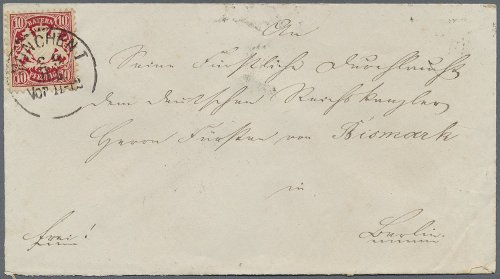 10 BAYERN 10
10 PFENNIG 10
MÜNCHEN I
Vor 11-12
An
Seine Fürstliche Durchlaucht
dem deutschen Reichskanzler
Herrn Fürsten von Bismark
in
frei!
Berlin.